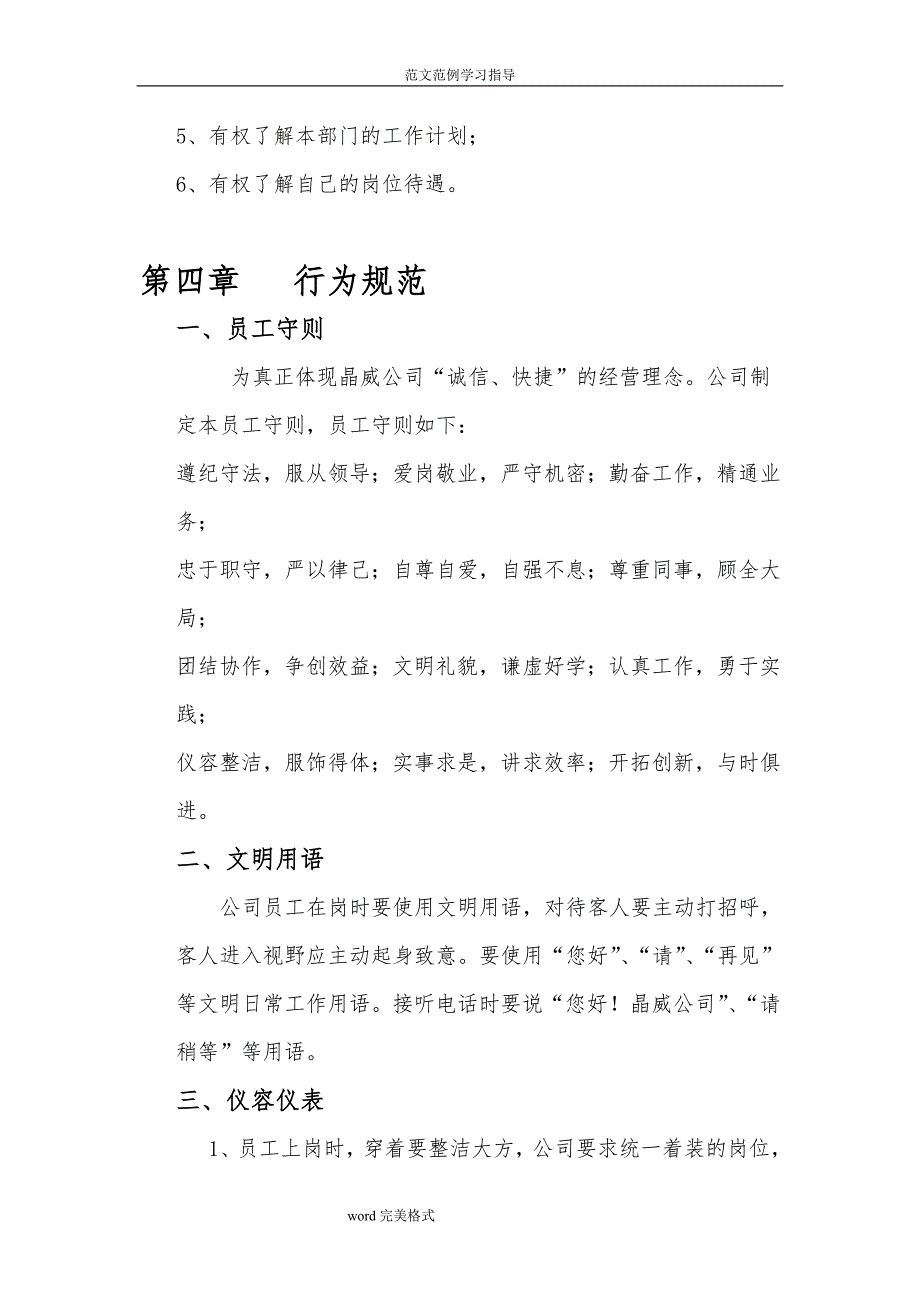 范文范例学习指导
5、有权了解本部门的工作计划；
6、有权了解自己的岗位待遇。
第四章　行为规范
一、员工守则
为真正体现晶威公司“诚信、快捷”的经营理念。公司制
定本员工守则，员工守则如下：
遵纪守法，服从领导；爱岗敬业，严守机密；勤奋工作，精通业
务；
忠于职守，严以律己；自尊自爱，自强不息；尊重同事，顾全大
局；
团结协作，争创效益；文明礼貌，谦虚好学；认真工作，勇于实
践；
仪容整洁，服饰得体；实事求是，讲求效率；开拓创新，与时俱
进。
二、文明用语
公司员工在岗时要使用文明用语，对待客人要主动打招呼，
客人进入视野应主动起身致意。要使用“您好”、“请”、“再见”
等文明日常工作用语。接听电话时要说“您好！晶威公司”、“请
稍等”等用语。
三、仪容仪表
1、员工上岗时，穿着要整洁大方，公司要求统一着装的岗位，
word 完美格式